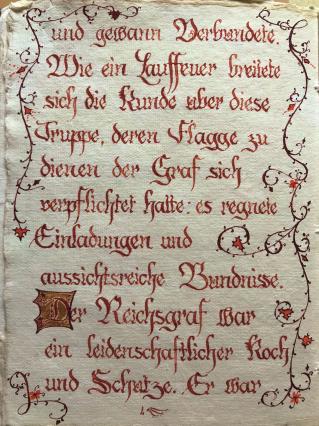 und gewann Verbündete.
Wie ein Lauffeuer breitete
sich die Kunde über diese
Truppe, deren Flagge zu
dienen der Graf sich
verpflichtet hatte: es regnete
Einladungen und
aussichtsreiche Bündnisse.
Der Reichsgraf war
ein leidenschaftlicher Koch
und Schätze. Er war